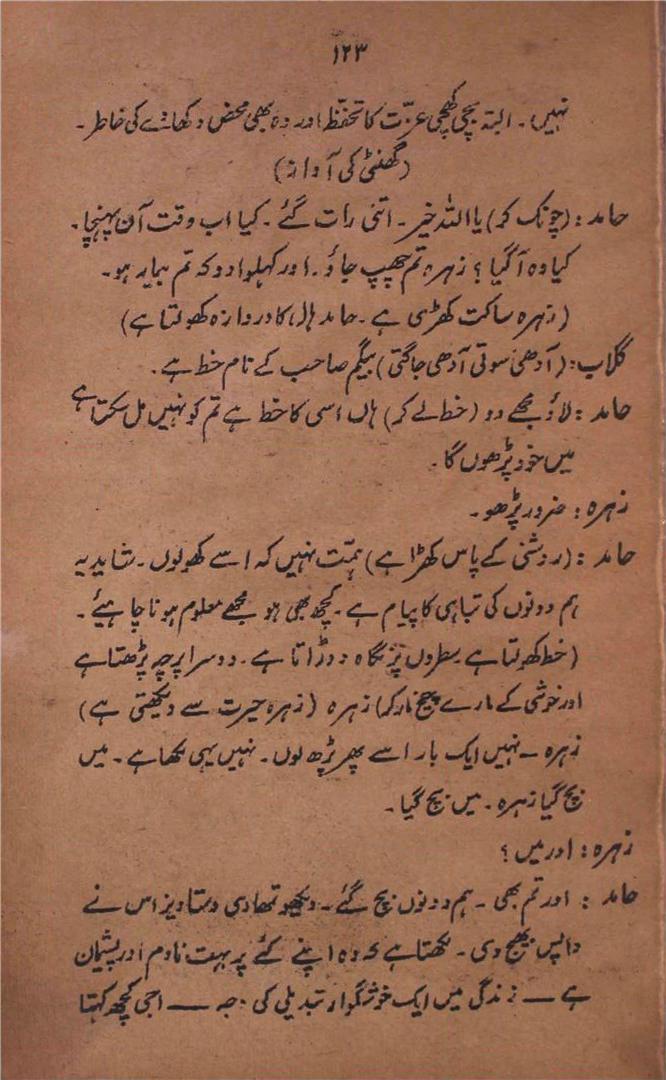 ۱۲۳
نہیں۔ البتہ بچی کھچی عزّت کا تحفّظ اور وہ بھی محض دکھاوے کی خاطر۔
(گھنٹی کی آواز)
حامد : (چونک کر) یا اللہ خیر۔ اتنی رات گئے۔ کیا اب وقت آن پہنچا۔
کیا وہ آگیا ؟ زہرہ تم چھپ جاؤ۔ اور کہلوا دو کہ تم بیمار ہو۔
(زہرہ ساکت کھڑی ہے۔ حامد ہال کا دروازہ کھولتا ہے)
گلاب: (آدھی سوتی آدھی جاگتی) بیگم صاحب کے نام خط ہے۔
حامد : لاؤ مجھے دو (خط لے کر) ہاں اسی کا خط ہے تم کو نہیں مل سکتا ہے
میں خود پڑھوں گا۔
زہرہ : ضرور پڑھو۔
حامد : (روشنی کے پاس کھڑا ہے) ہمّت نہیں کہ اسے کھولوں۔ شاید یہ
ہم دونوں کی تباہی کا پیام ہے۔ کچھ بھی ہو مجھے معلوم ہونا چاہیئے۔
(خط کھولتا ہے سطروں پر نگاہ دوڑاتا ہے۔ دوسرا پرچہ پڑھتا ہے
اور خوشی کے مارے چیخ مار کر) زہرہ (زہرہ حیرت سے دیکھتی ہے)
زہرہ ۔ نہیں ایک بار اسے پھر پڑھ لوں۔ نہیں یہی لکھا ہے۔ میں
بچ گیا زہرہ۔ میں بچ گیا۔
زہرہ : اور میں ؟
حامد : اور تم بھی ۔ ہم دونوں بچ گئے۔ دیکھو تمھاری دستاویز اس نے
واپس بھیج دی۔ لکھتا ہے کہ وہ اپنے کئے پر بہت نادم اور پشیمان
ہے ــــ زندگی میں ایک خوشگوار تبدیلی کی وجہ ــــ اجی کچھ کہتا